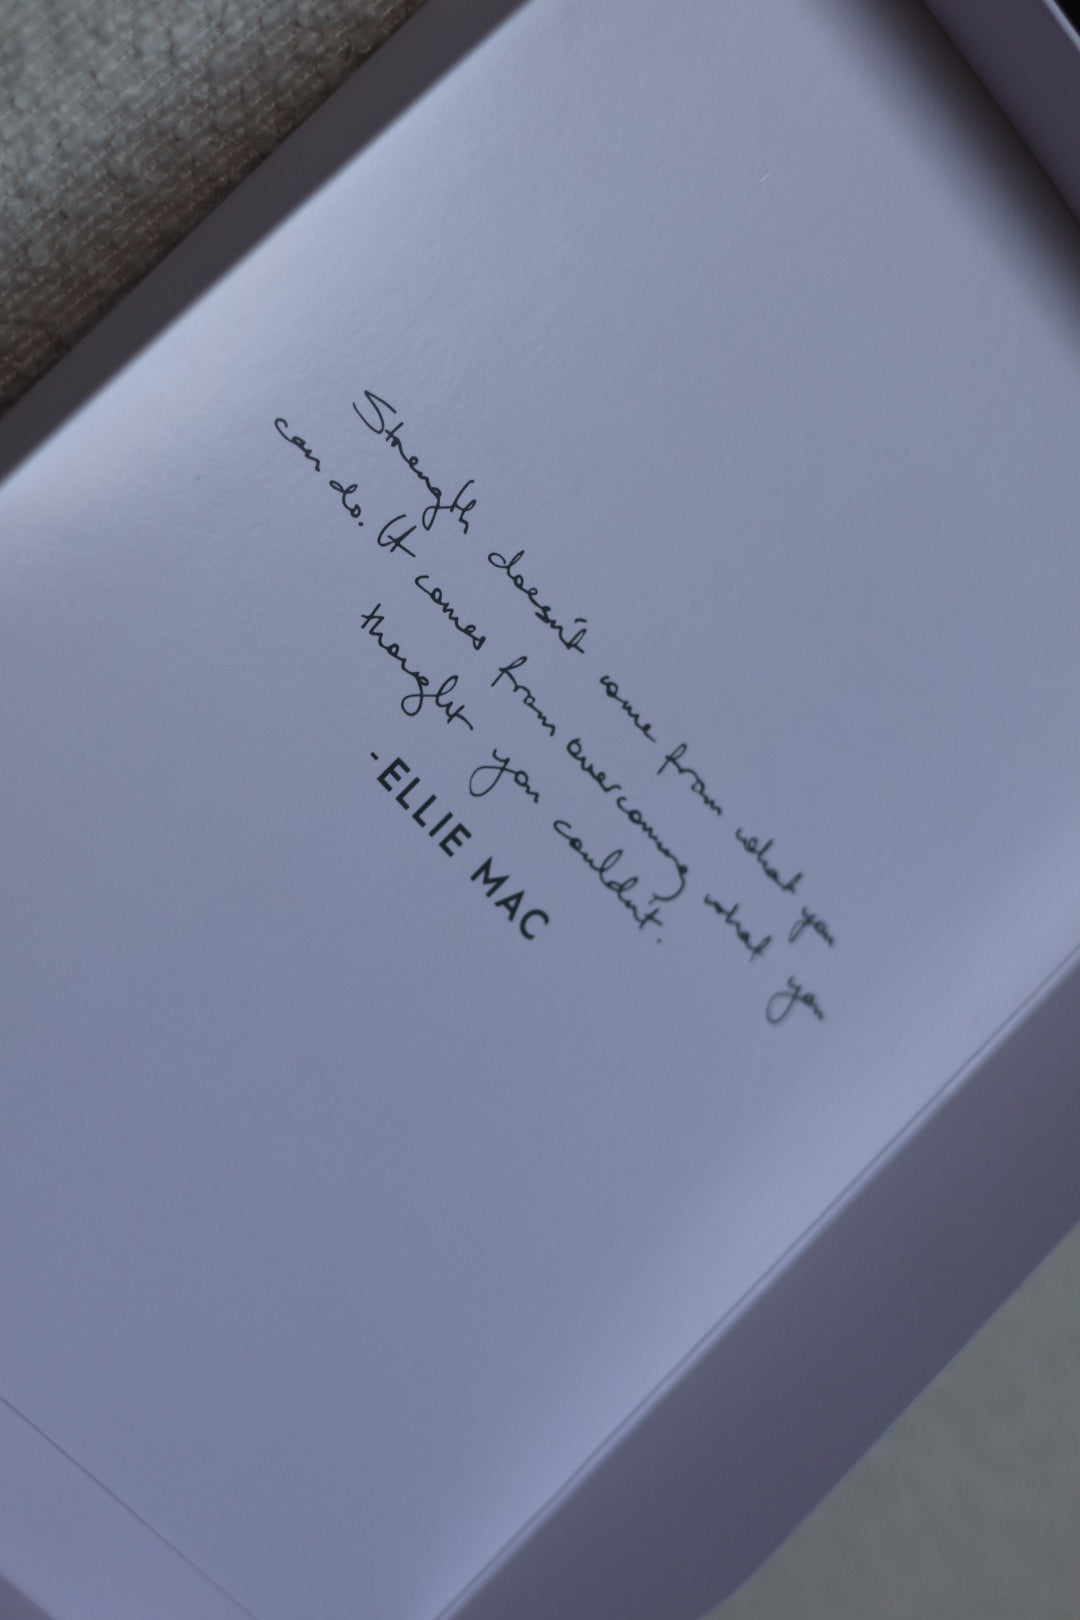 Strength doesn't come from what you
can do. It comes from overcoming what you
thought you couldn't.
-ELLIE MAC